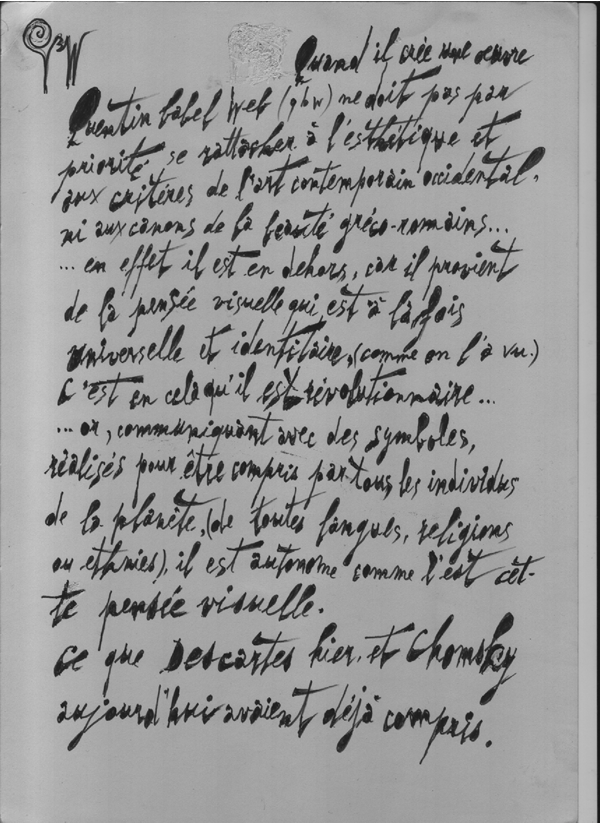 qbW
Quand il crée une oeuvre
Quentin babel Web (qbw) ne doit pas par
priorité se rattacher à l'esthétique et
aux critères de l'art contemporain occidental,
ni aux canons de la beauté gréco-romains...
... en effet il est en dehors, car il provient
de la pensée visuelle qui est à la fois
universelle et identitaire, (comme on l'a vu.)
C'est en cela qu'il est révolutionnaire...
... or, communiquant avec des symboles,
réalisés pour être compris par tous les individus
de la planète, (de toutes langues, religions
ou ethnies), il est autonome comme l'est cet-
te pensée visuelle.
Ce que Descartes hier, et Chomsky
aujourd'hui avaient déjà compris.